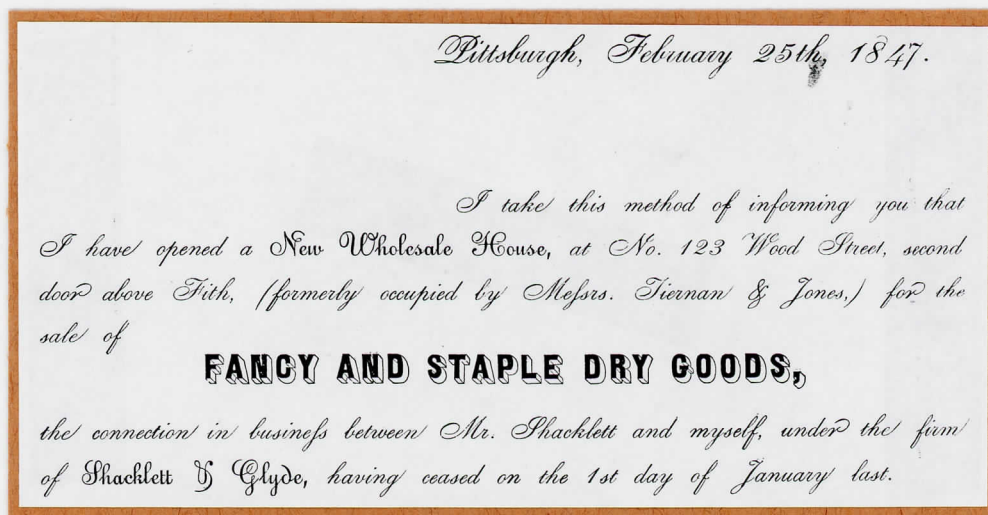 Pittsburgh, February 25th, 1847.
I take this method of informing you that
I have opened a New Wholesale House, at No. 123 Wood Street, second
door above Fith, (formerly occupied by Meſsrs. Tiernan & Jones,) for the
sale of
FANCY AND STAPLE DRY GOODS,
the connection in buſineſs between Mr. Shacklett and myself, under the firm
of Shacklett & Glyde, having ceased on the 1st day of January last.